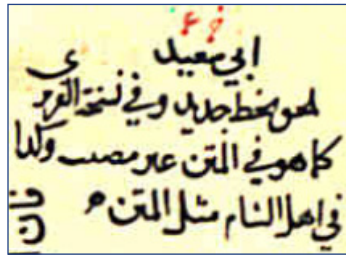 ابي سعيد
لحق بخط جديد وفي نسخة
كما هو في المتن عىر مصىب وكذا
في اهل الشام مثل المتن ه